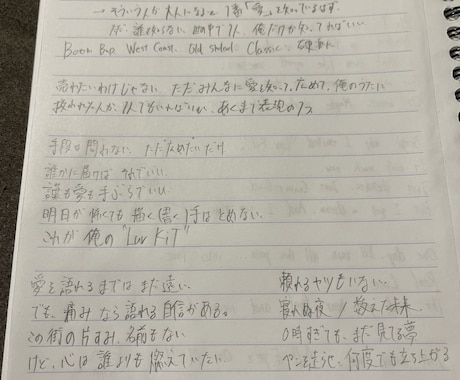 → そういう人が大人になると 1番「愛」を知っているはず。
ただ 誰も知らない 世界で1人、俺だけが知ってればいい。
Boom Bap West Coast. Old school. Classic
売れたいわけじゃない ただみんなに愛を知って、広めて、俺のうたに
救われた人が、1人でもいればいいが、あくまで表現の1つ
手段は問わない、ただ広めたいだけ
誰かに届けば それでいい
誰も愛も手ぶらでいい
明日が怖くても 描く(書く)手はとめない。
これが 俺の "Luv KiT"
愛を語れるまでは まだ遠い
でも、痛みなら語れる自信がある。
この街の片すみ、名前もない
けど、心は誰よりも燃えていたい
頼れるヤツもいない。
寝れぬ夜 / 数えた未来
0時すぎても、まだ見てる夢
ペンを走らせ、何度でも立ち上がる